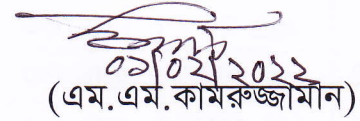 ০১/০২/২০২২
(এম.এম.কামরুজ্জামান)